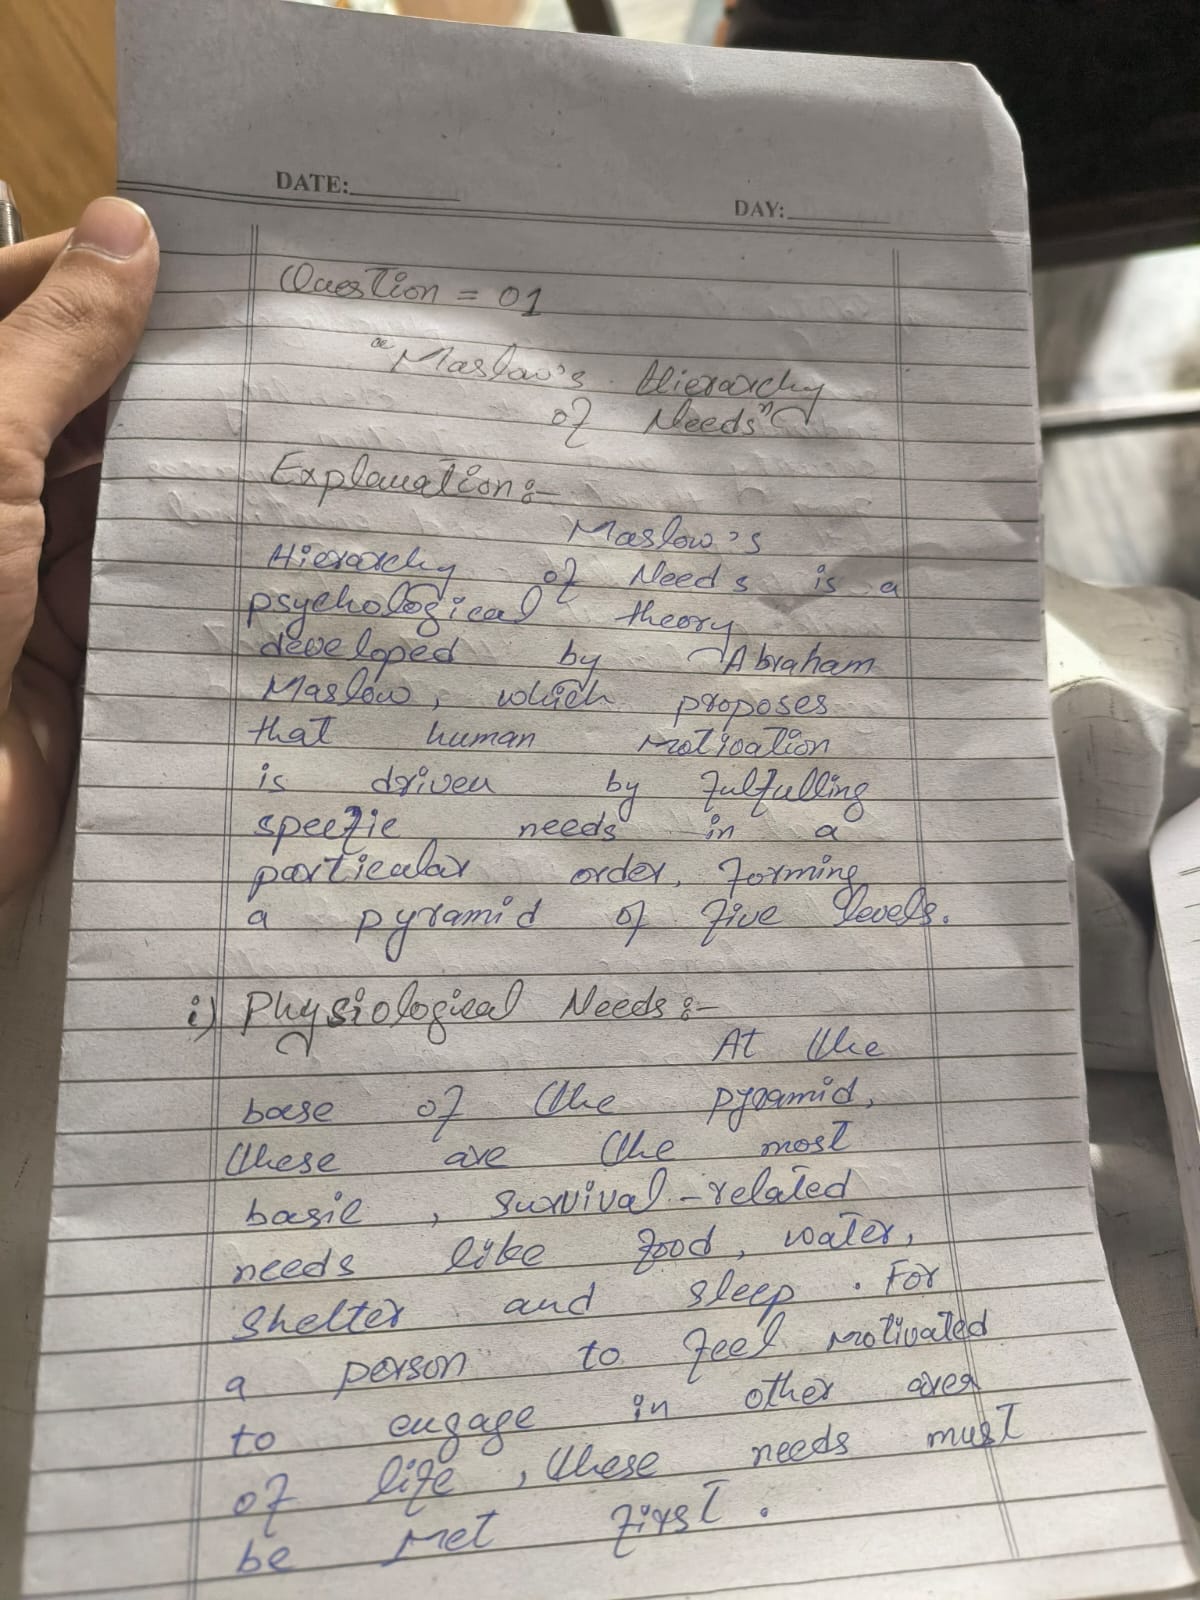 DATE:
DAY:
Question = 01
"Maslow's Hierarchy
of Needs"
Explanation:-
Maslow's
Hierarchy of Needs is a
psychological theory
developed by Abraham
Maslow, which proposes
that human motivation
is driven by fulfulling
specfic needs in a
particular order, forming
a pyramid of five levels.
i) Physiological Needs:-
At the
base of the pyramid,
these are the most
basic, survival-related
needs like food, water,
shelter and sleep. For
a person to feel motivated
to engage in other area
of life, these needs must
be met first.